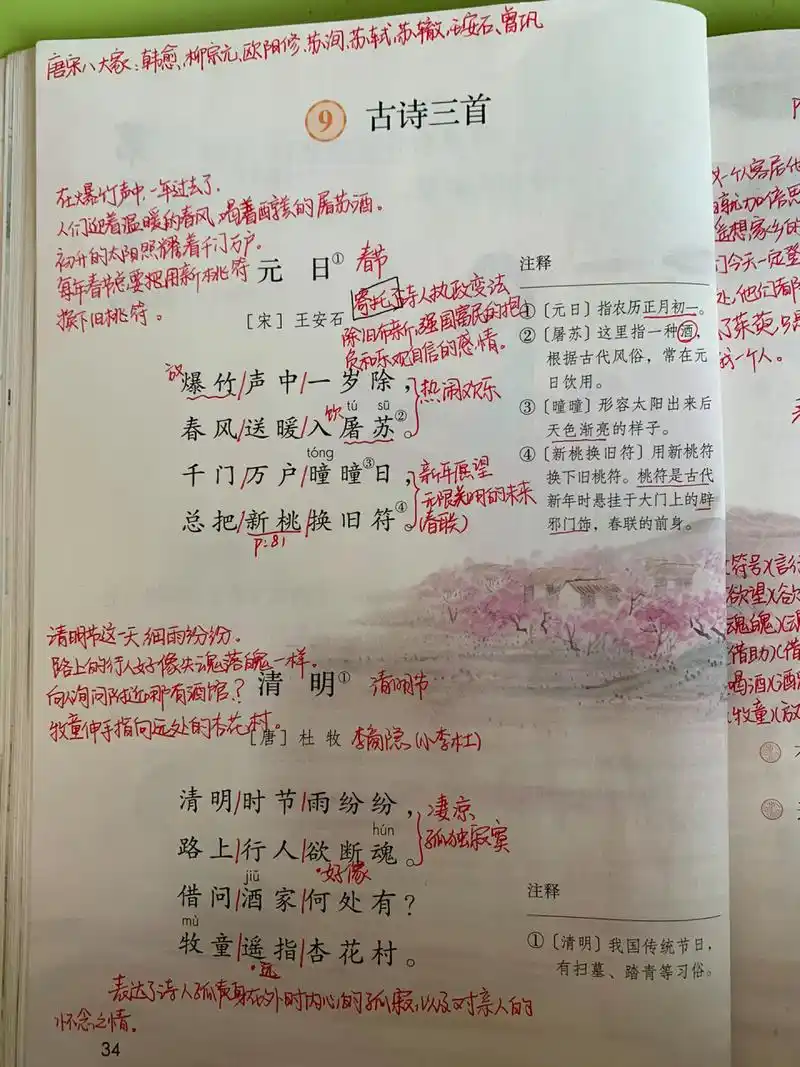 唐宋八大家:韩愈、柳宗元、欧阳修、苏洵、苏轼、苏辙、王安石、曾巩
9 古诗三首
在爆竹声中,一年过去了,
人们迎着温暖的春风,喝着醇美的屠苏酒。
初升的太阳照耀着千门万户。
每年春节总要把用新桃符
换下旧桃符。
元 日① 春节
[宋] 王安石
寄托了诗人执政变法
除旧布新,强国富民的抱
负和乐观自信的感情。
放
爆竹/声中/一岁除, 热闹欢乐
饮 tú sū
春风/送暖/入屠苏②。
tóng
千门/万户/曈曈③日, 新年展望
无限美好的未来
总把/新桃/换旧符④。 (春联)
P:81
注释
① 〔元日〕指农历正月初一。
② 〔屠苏〕这里指一种酒,
根据古代风俗,常在元
日饮用。
③ 〔曈曈〕形容太阳出来后
天色渐亮的样子。
④ 〔新桃换旧符〕用新桃符
换下旧桃符。桃符是古代
新年时悬挂于大门上的辟
邪门饰,春联的前身。
清明节这一天细雨纷纷。
路上的行人好像失魂落魄一样。
向人询问附近哪有酒馆?
牧童伸手指向远处的杏花村。
清 明① 清明节
[唐] 杜 牧 李商隐 (小李杜)
清明/时节/雨纷纷, 凄凉
hún
路上/行人/欲断魂。 孤独寂寞
好像
jiǔ
借问/酒家/何处有?
mù
牧童/遥指/杏花村。
远
注释
① 〔清明〕我国传统节日,
有扫墓、踏青等习俗。
表达了诗人孤身在外时内心的孤寂,以及对亲人的
怀念之情。
34
一个人客居他
遥想家乡的
们今天一定登
处,他们
了茱萸,只
我一个人。
符号)(言行
欲望)(欲
魂魄)(
借助)(借
喝酒)(酒
牧童)(放